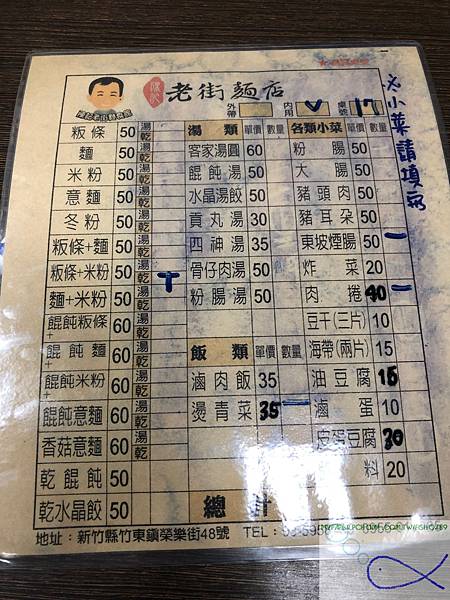 陳家 老街麵店
外帶 內用 V 桌號 17
※小菜請填寫
粄條 50 湯 乾
麵 50 湯 乾
米粉 50 湯 乾
意麵 50 湯 乾
冬粉 50 湯 乾
粄條+麵 50 湯 乾
粄條+米粉 50 湯 乾
麵+米粉 50 湯 乾
餛飩+粄條 60 湯 乾
餛飩+麵 60 湯 乾
餛飩+米粉 60 湯 乾
餛飩意麵 60 湯 乾
香菇意麵 60 湯 乾
乾餛飩 50
乾水晶餃 50
湯類 單價 數量
客家湯圓 60
餛飩湯 50
水晶湯餃 50
貢丸湯 30
四神湯 35
骨仔肉湯 50
粉腸湯 50
飯類 單價 數量
滷肉飯 35
燙青菜 35 一
各類小菜 單價 數量
粉腸 50
大腸 50
豬頭肉 50
豬耳朵 50
東坡煙腸 50 一
炸菜 20
肉捲 40 一
豆干(三片) 10
海帶(兩片) 15
油豆腐 15
滷蛋 10
皮蛋豆腐 30
料 20
總計
地址：新竹縣竹東鎮榮樂街48號 TEL：03-595